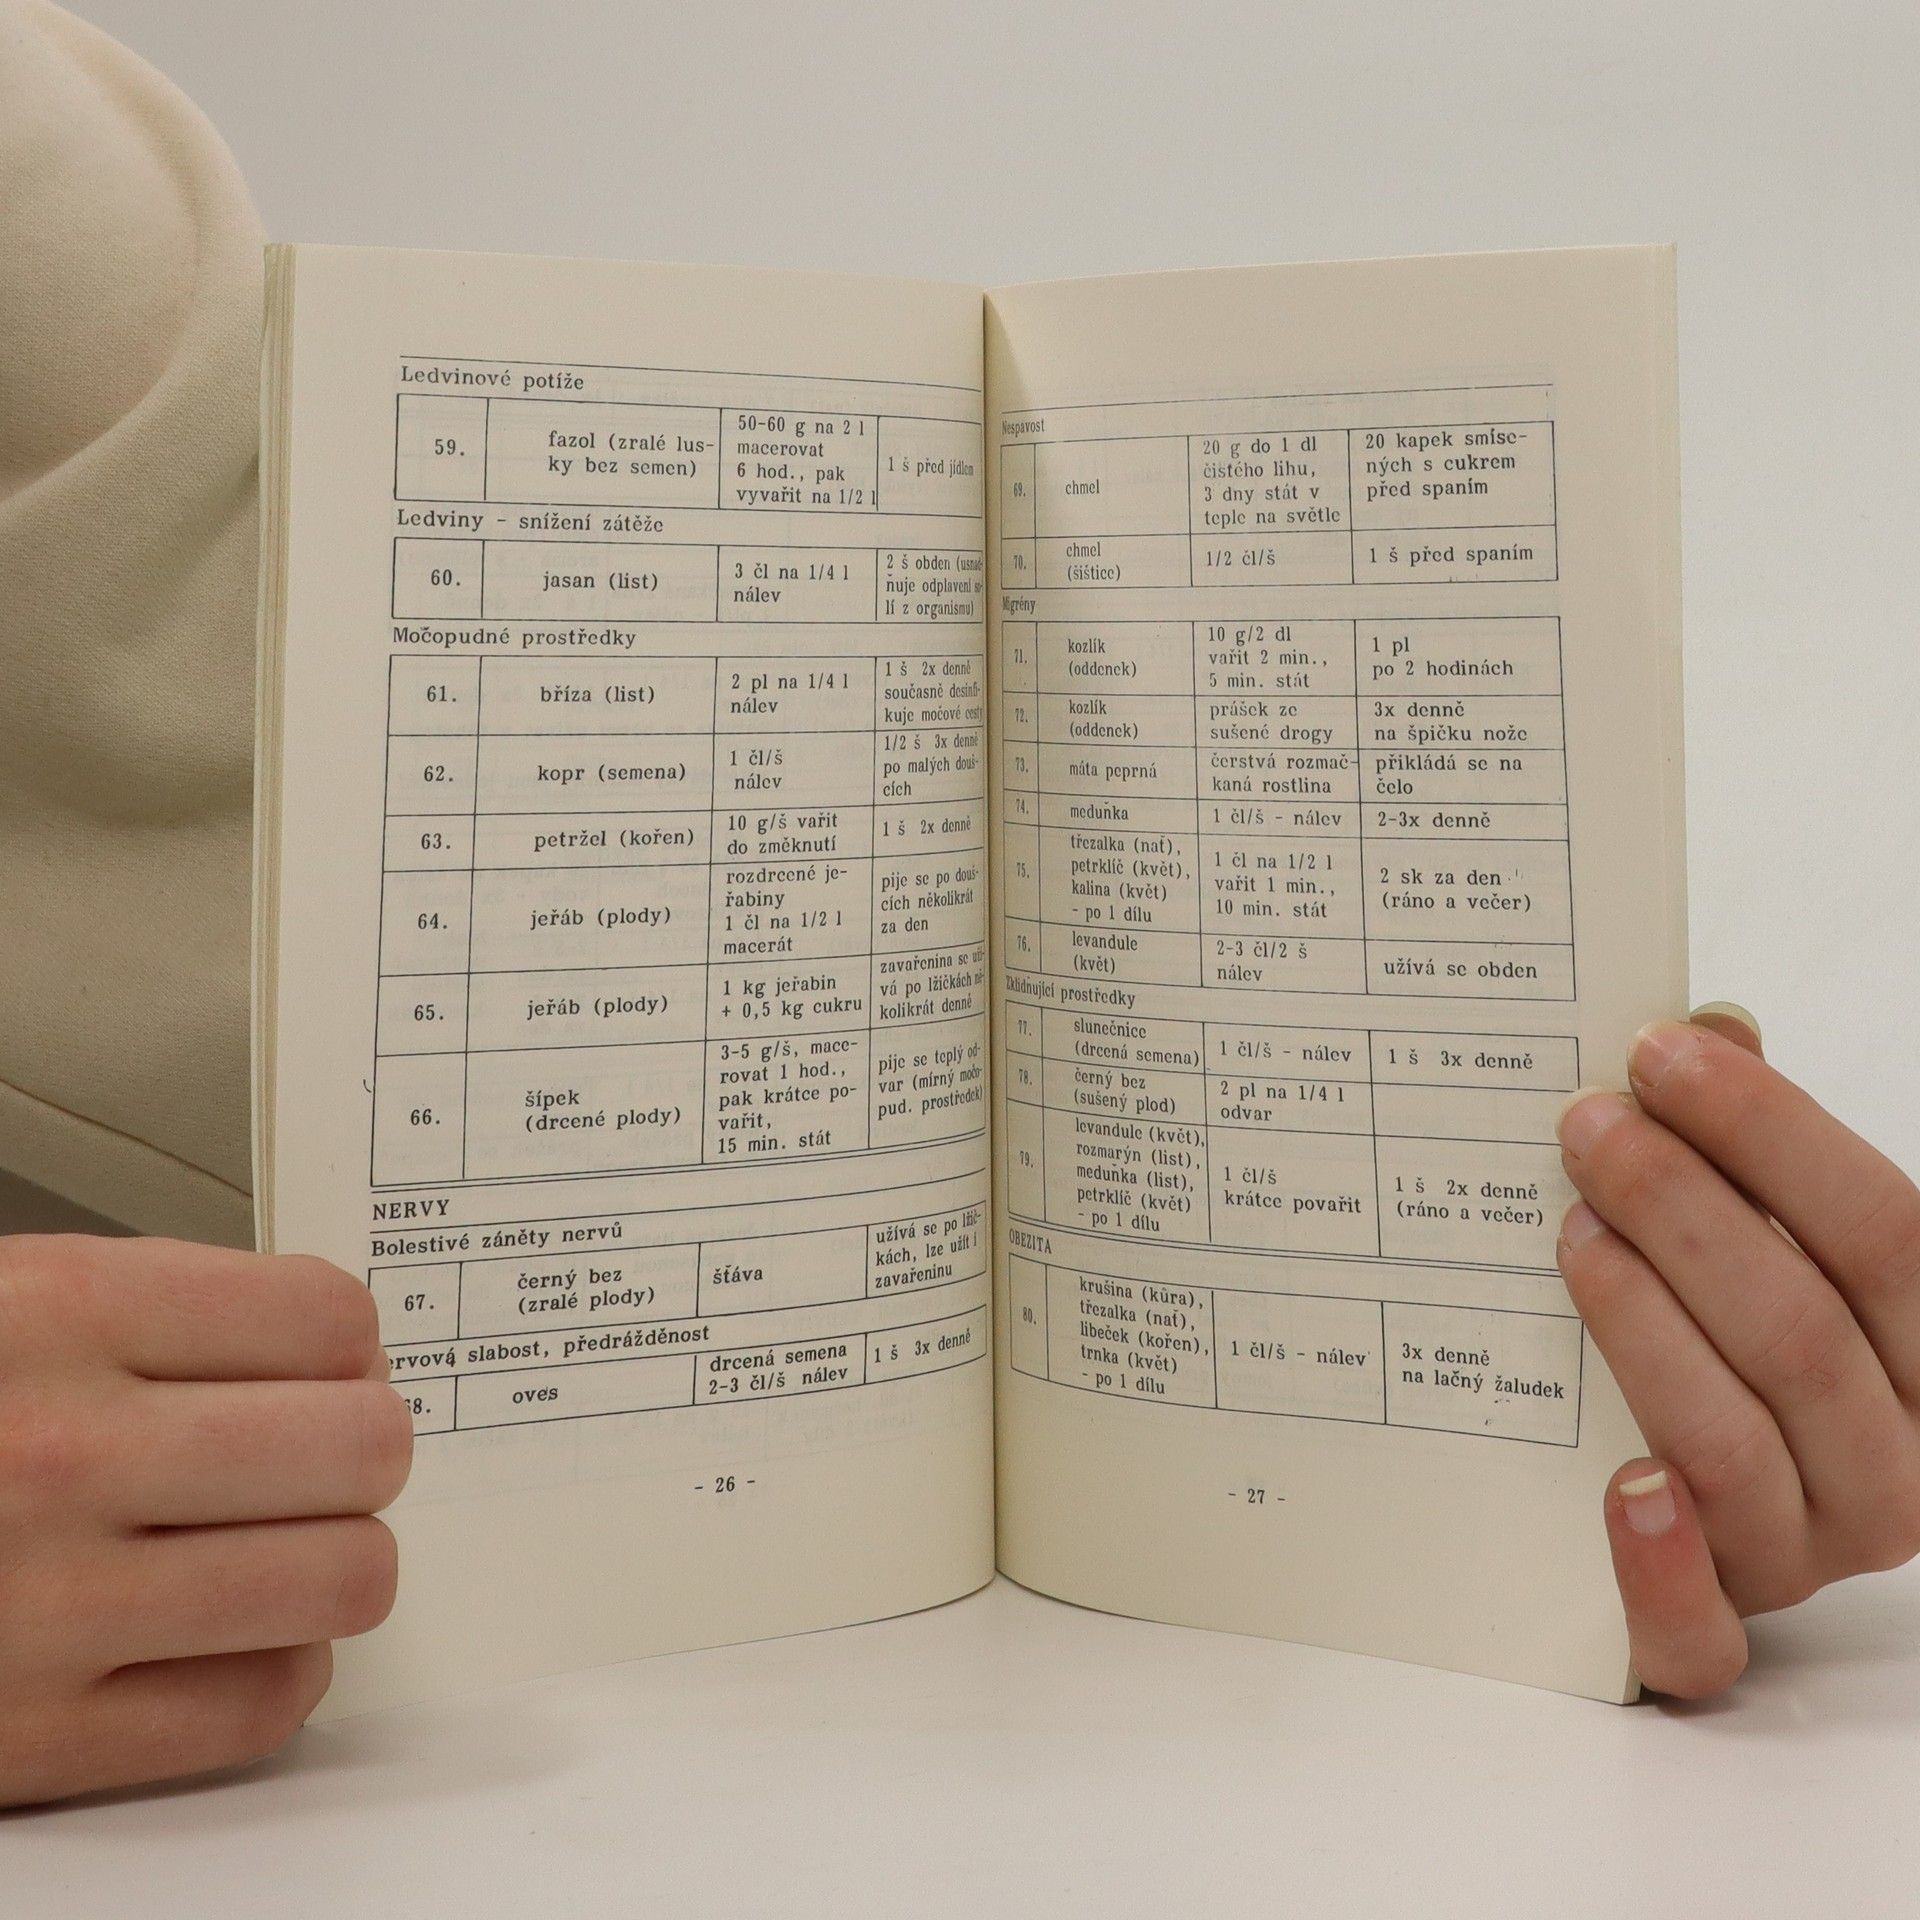 Ledvinové potíže
59. fazol (zralé lus-
ky bez semen)
50-60 g na 2 l
macerovat
6 hod., pak
vyvařit na 1/2 l
1 š před jídlem
Ledviny - snížení zátěže
60. jasan (list)
3 čl na 1/4 l
nálev
2 š obden (usnad-
ňuje odplavení so-
lí z organismu)
Močopudné prostředky
61. bříza (list)
2 pl na 1/4 l
nálev
1 š 2x denně
současně desinfi-
kuje močové cesty
62. kopr (semena)
1 čl/š
nálev
1/2 š 3x denně
po malých douš-
cích
63. petržel (kořen)
10 g/š vařit
do změknutí
1 š 2x denně
64. jeřáb (plody)
rozdrcené je-
řabiny
1 čl na 1/2 l
macerát
pije se po douš-
cích několikrát
za den
65. jeřáb (plody)
1 kg jeřabin
+ 0,5 kg cukru
zavařenina se uží-
vá po lžičkách ně-
kolikrát denně
66. šípek
(drcené plody)
3-5 g/š, mace-
rovat 1 hod.,
pak krátce po-
vařit,
15 min. stát
pije se teplý od-
var (mírný močo-
pud. prostředek)
NERVY
Bolestivé záněty nervů
67. černý bez
(zralé plody)
šťáva
užívá se po lžič-
kách, lze užít i
zavařeninu
ervová slabost, předrážděnost
68. oves
drcená semena
2-3 čl/š nálev
1 š 3x denně
- 26 -
Nespavost
69. chmel
20 g do 1 dl
čistého lihu,
3 dny stát v
teple na světle
20 kapek smíse-
ných s cukrem
před spaním
70. chmel
(šištice)
1/2 čl/š
1 š před spaním
Migrény
71. kozlík
(oddenek)
10 g/2 dl
vařit 2 min.,
5 min. stát
1 pl
po 2 hodinách
72. kozlík
(oddenek)
prášek ze
sušené drogy
3x denně
na špičku nože
73. máta peprná
čerstvá rozmač-
kaná rostlina
přikládá se na
čelo
74. meduňka
1 čl/š - nálev
2-3x denně
75. třezalka (nať),
petrklíč (květ),
kalina (květ)
- po 1 dílu
1 čl na 1/2 l
vařit 1 min.,
10 min. stát
2 sk za den
(ráno a večer)
76. levandule
(květ)
2-3 čl/2 š
nálev
užívá se obden
Zklidňující prostředky
77. slunečnice
(drcená semena)
1 čl/š - nálev
1 š 3x denně
78. černý bez
(sušený plod)
2 pl na 1/4 l
odvar
79. levandule (květ),
rozmarýn (list),
meduňka (list),
petrklíč (květ)
- po 1 dílu
1 čl/š
krátce povařit
1 š 2x denně
(ráno a večer)
OBEZITA
80. krušina (kůra),
třezalka (nať),
libeček (kořen),
trnka (květ)
- po 1 dílu
1 čl/š - nálev
3x denně
na lačný žaludek
- 27 -